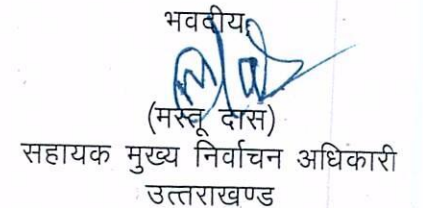 भवदीय,
(मस्तू दास)
सहायक मुख्य निर्वाचन अधिकारी
उत्तराखण्ड